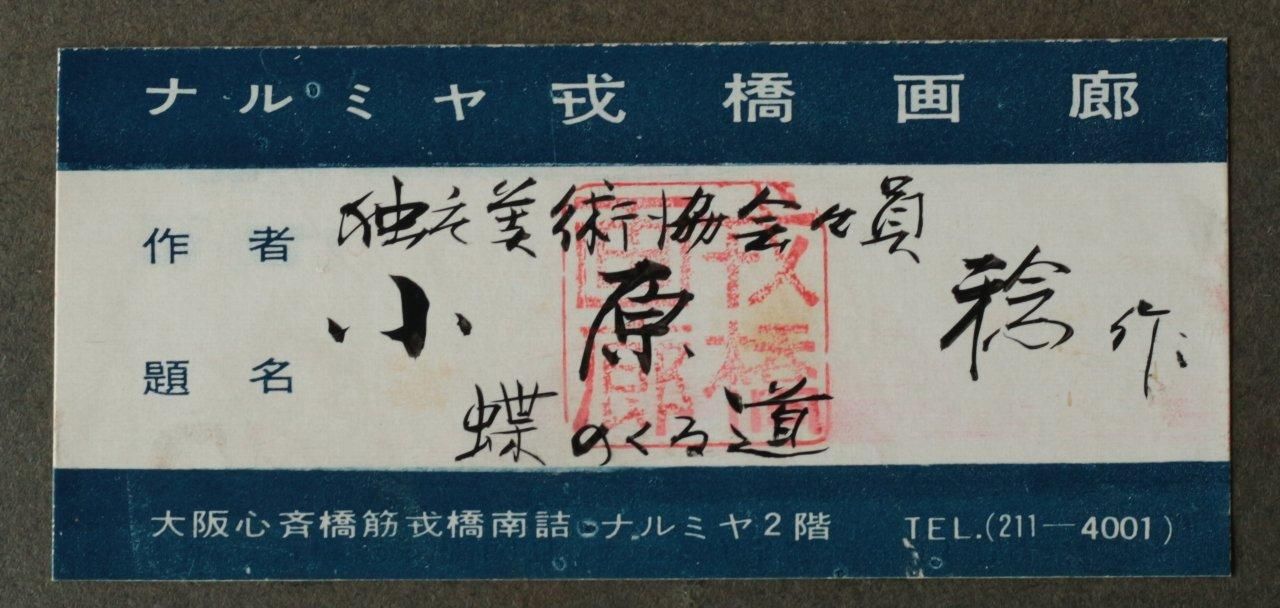 ナルミヤ戎橋画廊
作者 独立美術協会々員
小原 稔 作
題名 蝶のくる道
戎橋画廊
大阪心斉橋筋戎橋南詰・ナルミヤ2階 TEL.(211—4001)